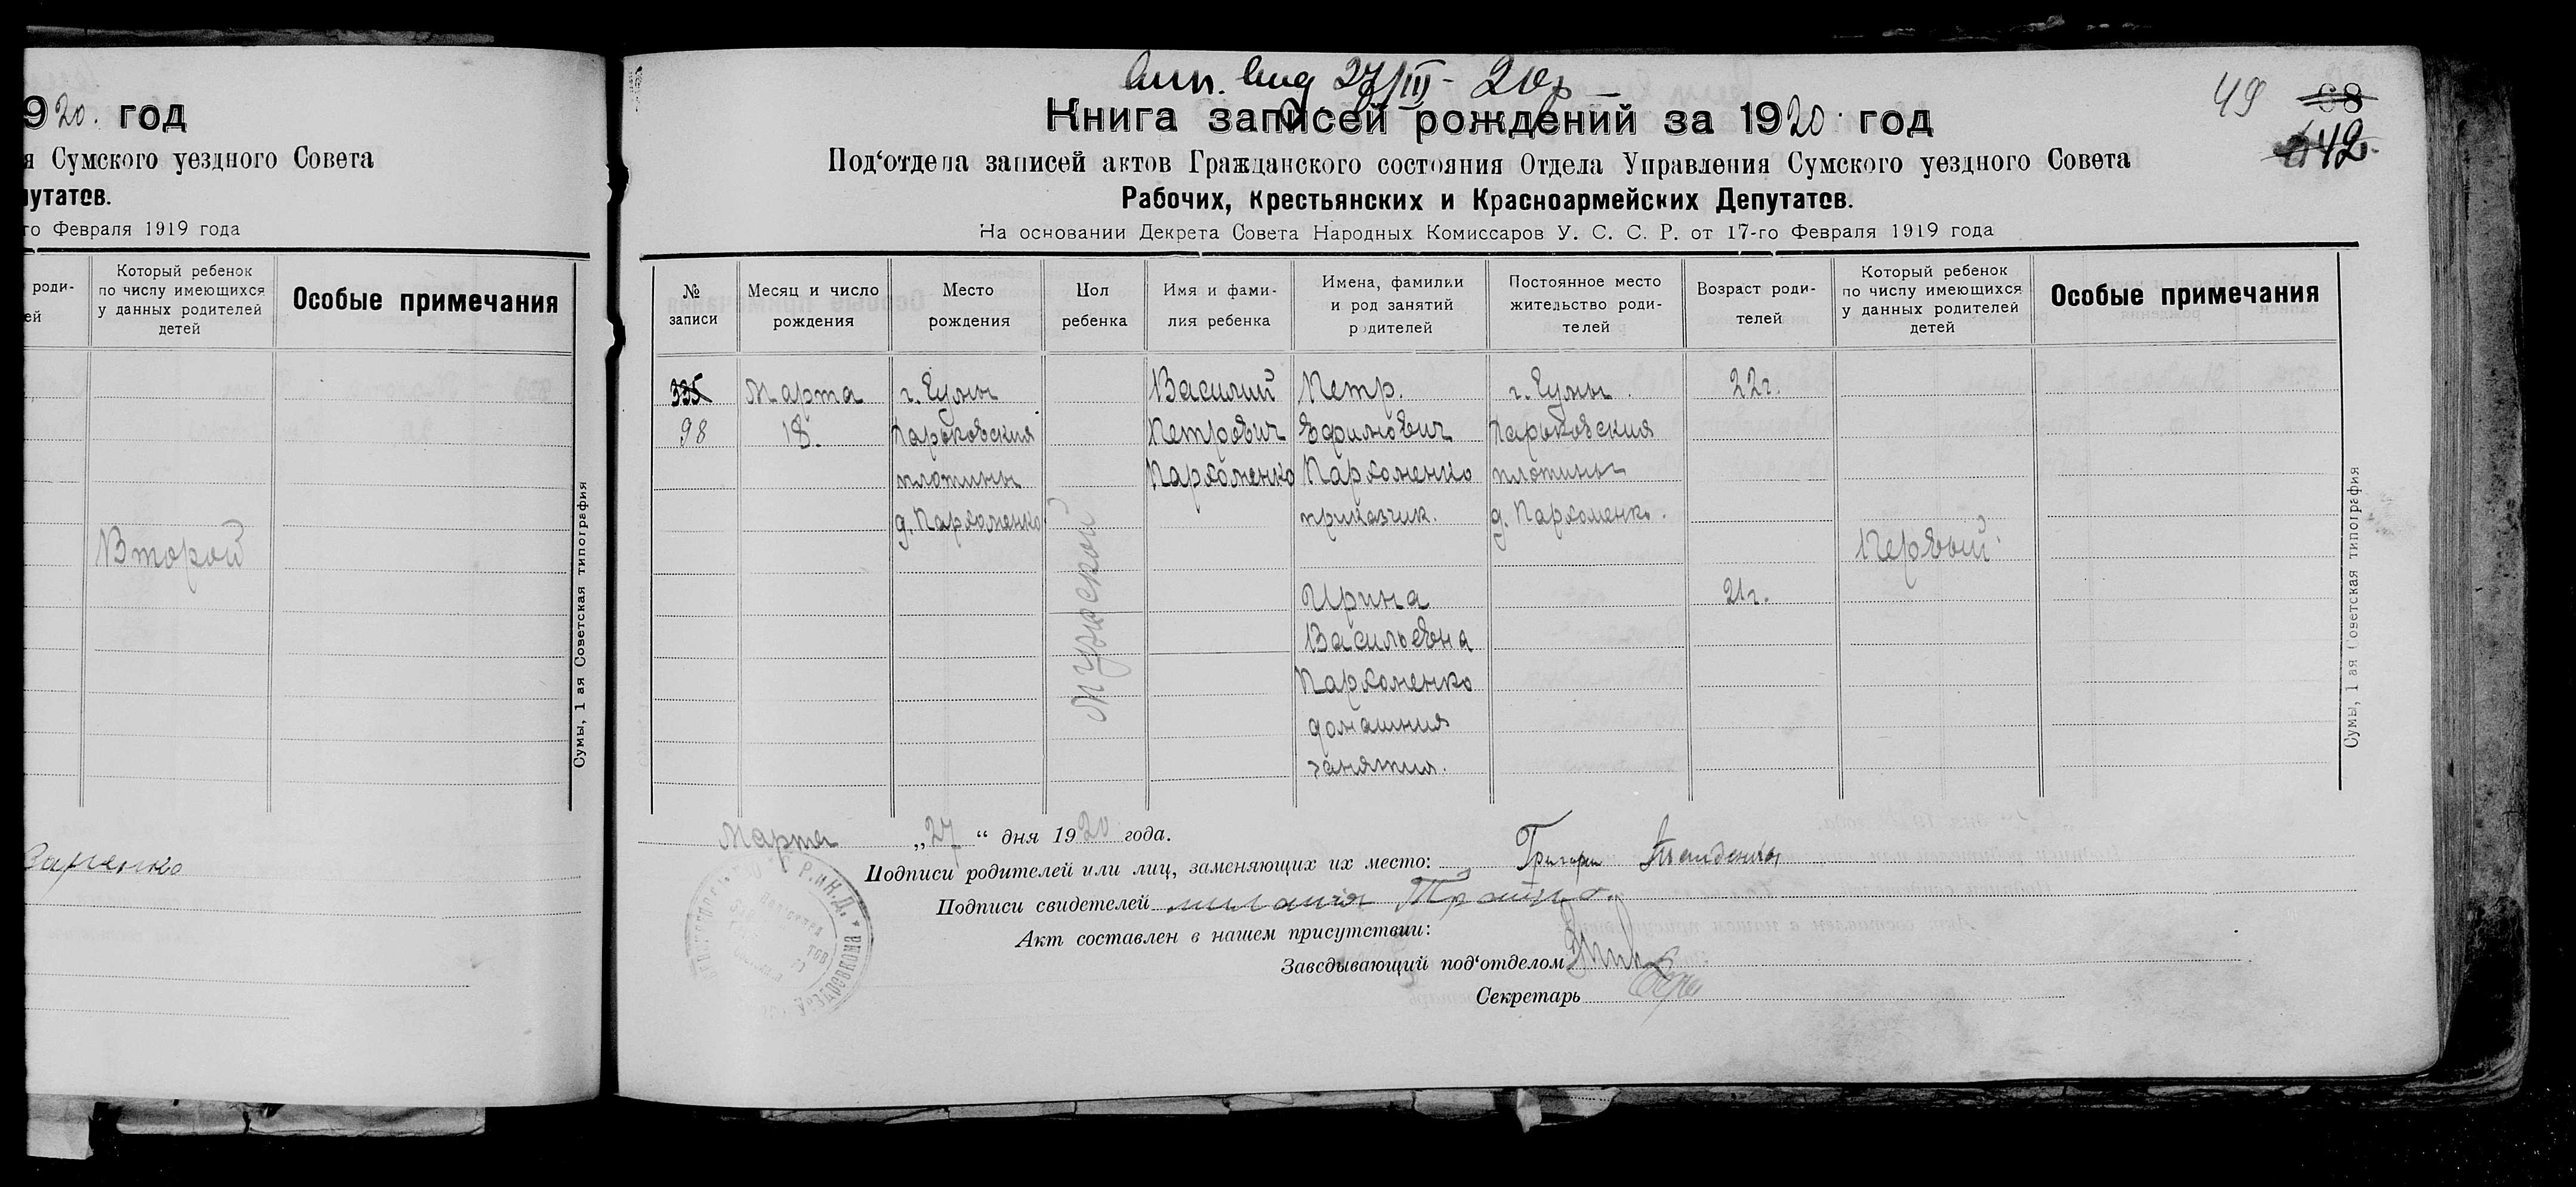 920. год
я Сумского уездного Совета
путатов.
го Февраля 1919 года
роди-
ей
Который ребенок
по числу имеющихся
у данных родителей
детей
Особые примечания
Второй
Сумы, 1 ая Советская типография
27/III - 20г
49 68
42
Книга записей рождений за 1920 год
Под‘отдела записей актов Гражданского состояния Отдела Управления Сумского уездного Совета
Рабочих, Крестьянских и Красноармейских Депутатов.
На основании Декрета Совета Народных Комиссаров У. С. С. Р. от 17-го Февраля 1919 года
№
записи
Месяц и число
рождения
Место
рождения
Пол
ребенка
Имя и фами-
лия ребенка
Имена, фамилии
и род занятий
родителей
Постоянное место
жительство роди-
телей
Возраст роди-
телей
Который ребенок
по числу имеющихся
у данных родителей
детей
Особые примечания
335
98
Марта
18.
г. Сумы
Харьковския
плотины
д. Пархоменко
Мужской
Василий
Петрович
Пархоменко
Петр.
Ефимович
Пархоменко
приказчик.
Ирина
Васильевна
Пархоменко
домашния
занятия.
г. Сумы.
Харьковския
плотины
д. Пархоменко.
22г.
21г.
Первый
Сумы, 1 ая Советская типография
Марта „27“ дня 1920 года.
Подписи родителей или лиц, заменяющих их место: Григори
Подписи свидетелей
Акт составлен в нашем присутствии:
Заведывающий под‘отделом
Секретарь